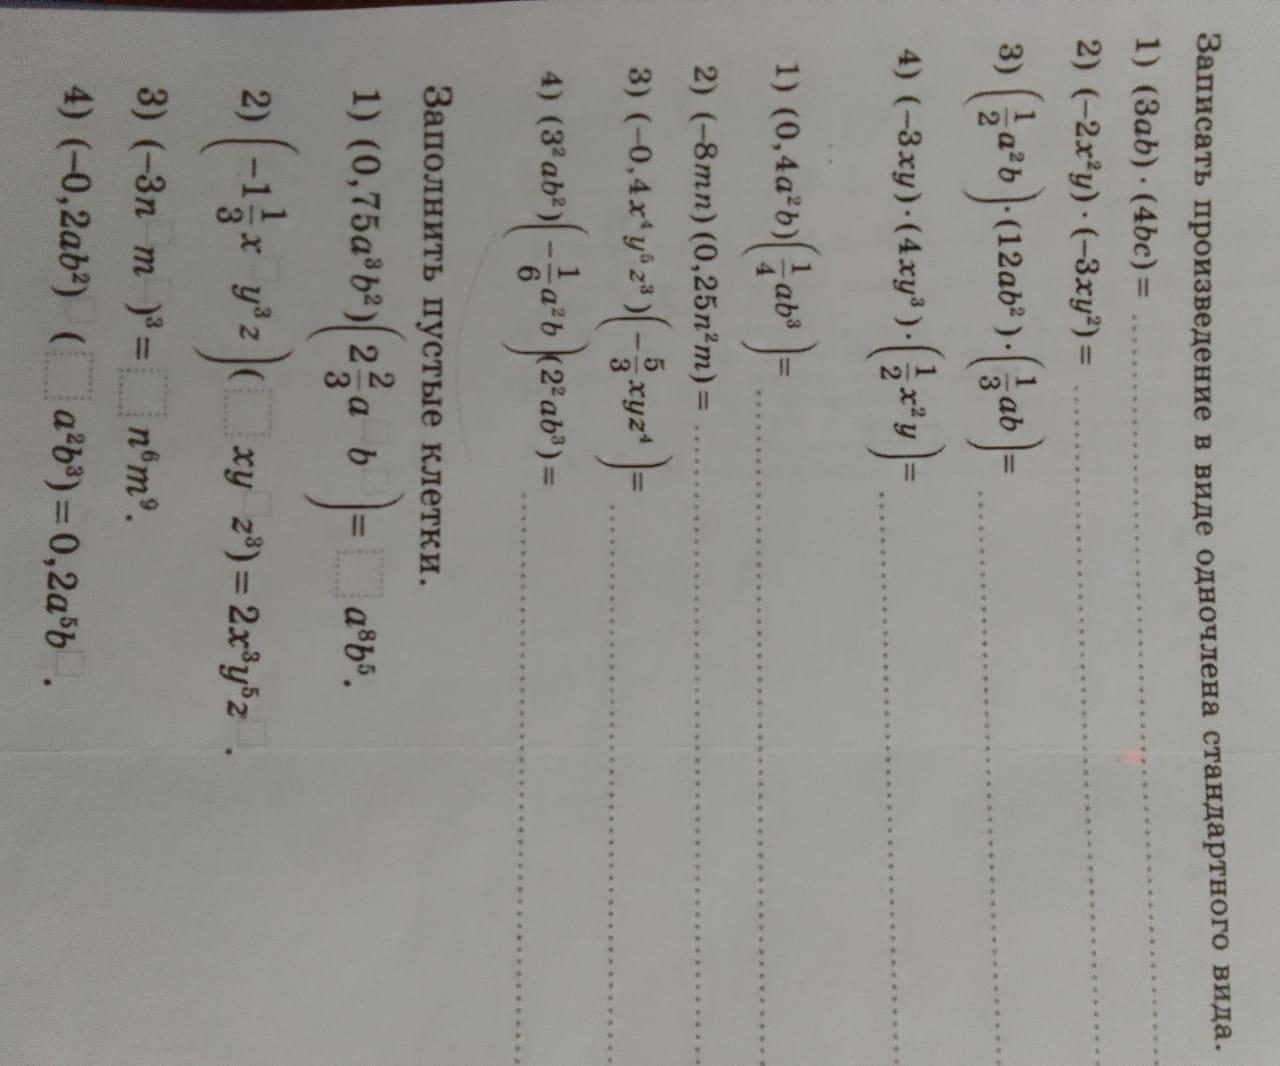 Записать произведение в виде одночлена стандартного вида.
1) (3ab)·(4bc)= ....................
2) (−2x²y)·(−3xy²)= ....................
3) (1/2 a²b)·(12ab²)·(1/3 ab)= ....................
4) (−3xy)·(4xy³)·(1/2 x²y)= ....................
1) (0,4a²b)(1/4 ab³)= ....................
2) (−8mn)(0,25n²m)= ....................
3) (−0,4x⁴y⁵z³)(−5/3 xyz⁴)= ....................
4) (3²ab²)(−1/6 a²b)(2²ab³)= ....................
Заполнить пустые клетки.
1) (0,75a³b²)(2 2/3 a□b□)=□a⁸b⁵.
2) (−1 1/3 x□y³z)(□xy□z³)=2x³y⁵z□.
3) (−3n□m□)³=□n⁶m⁹.
4) (−0,2ab²)□(□a²b³)=0,2a⁵b□.